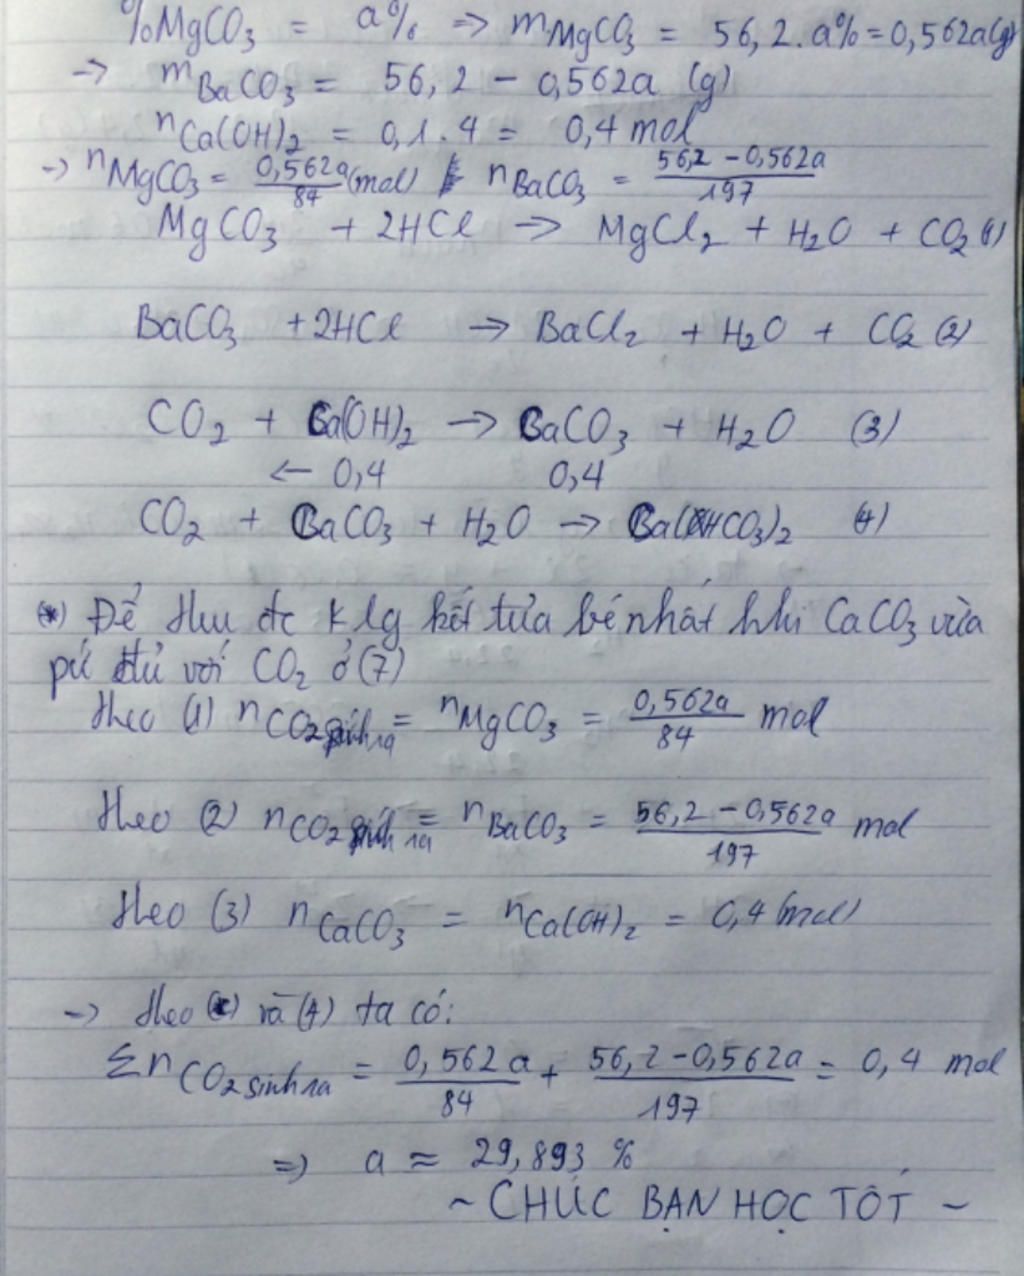 %MgCO3 = a% => mMgCO3 = 56,2.a% = 0,562a(g)
-> mBaCO3 = 56,2 - 0,562a (g)
nCa(OH)2 = 0,1.4 = 0,4 mol
-> nMgCO3 = 0,562a/84 (mol) nBaCO3 = 56,2-0,562a/197
MgCO3 + 2HCl -> MgCl2 + H2O + CO2 (1)
BaCO3 + 2HCl -> BaCl2 + H2O + CO2 (2)
CO2 + Ca(OH)2 -> CaCO3 + H2O (3)
<- 0,4 0,4
CO2 + CaCO3 + H2O -> Ca(HCO3)2 (4)
(*) Để thu đc k lg kết tủa bé nhất khi CaCO3 vừa
pứ đủ với CO2 ở (7)
theo (1) nCO2 sinh ra = nMgCO3 = 0,562a/84 mol
theo (2) nCO2 sinh ra = nBaCO3 = 56,2-0,562a/197 mol
theo (3) nCaCO3 = nCa(OH)2 = 0,4 (mol)
-> theo (*) và (4) ta có:
ΣnCO2 sinh ra = 0,562a/84 + 56,2-0,562a/197 = 0,4 mol
=> a ≈ 29,893 %
~ CHÚC BẠN HỌC TỐT ~